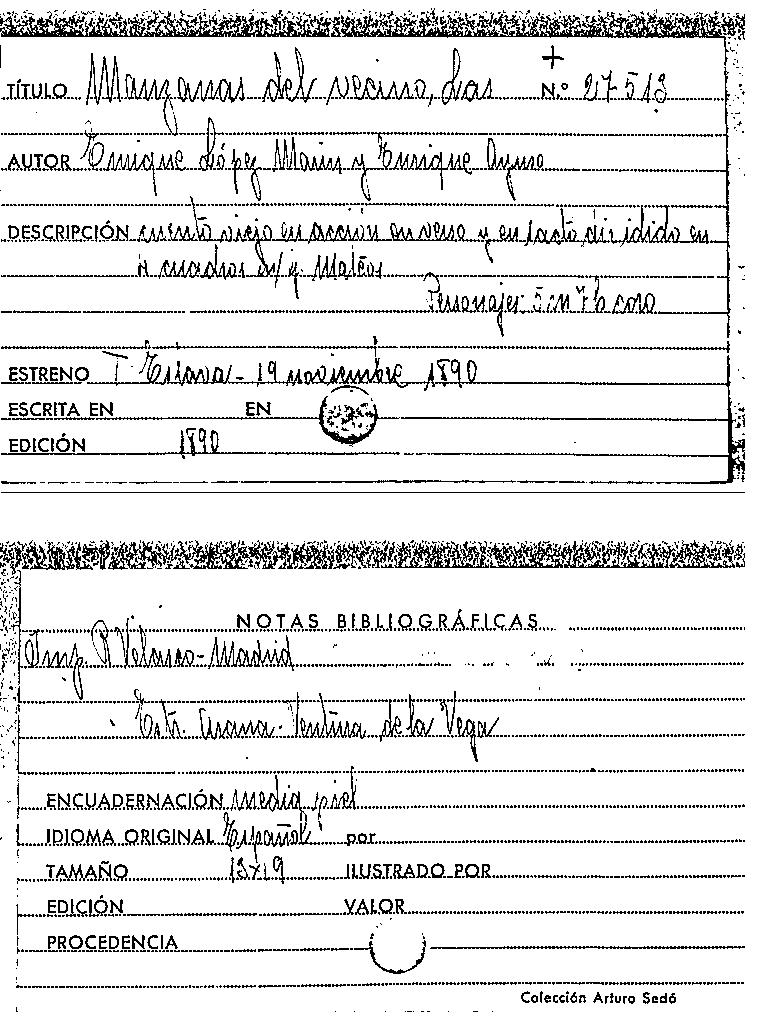 TÍTULO Manzanas del vecino, Las N.º 27513
AUTOR Enrique López Marín y Enrique Ayuso
DESCRIPCIÓN cuento viejo en acción en verso y en 1 acto dividido en
4 cuadros M/ y. Mateos
Personajes: 5 m 7 h coro
ESTRENO T. Eslava - 19 noviembre 1890
ESCRITA EN EN
EDICIÓN 1890
NOTAS BIBLIOGRÁFICAS
Imp. R Velasco - Madrid
Estr. Arana - Ventura de la Vega
ENCUADERNACIÓN media piel
IDIOMA ORIGINAL Español por
TAMAÑO 13x19 ILUSTRADO POR
EDICIÓN VALOR
PROCEDENCIA
Colección Arturo Sedó